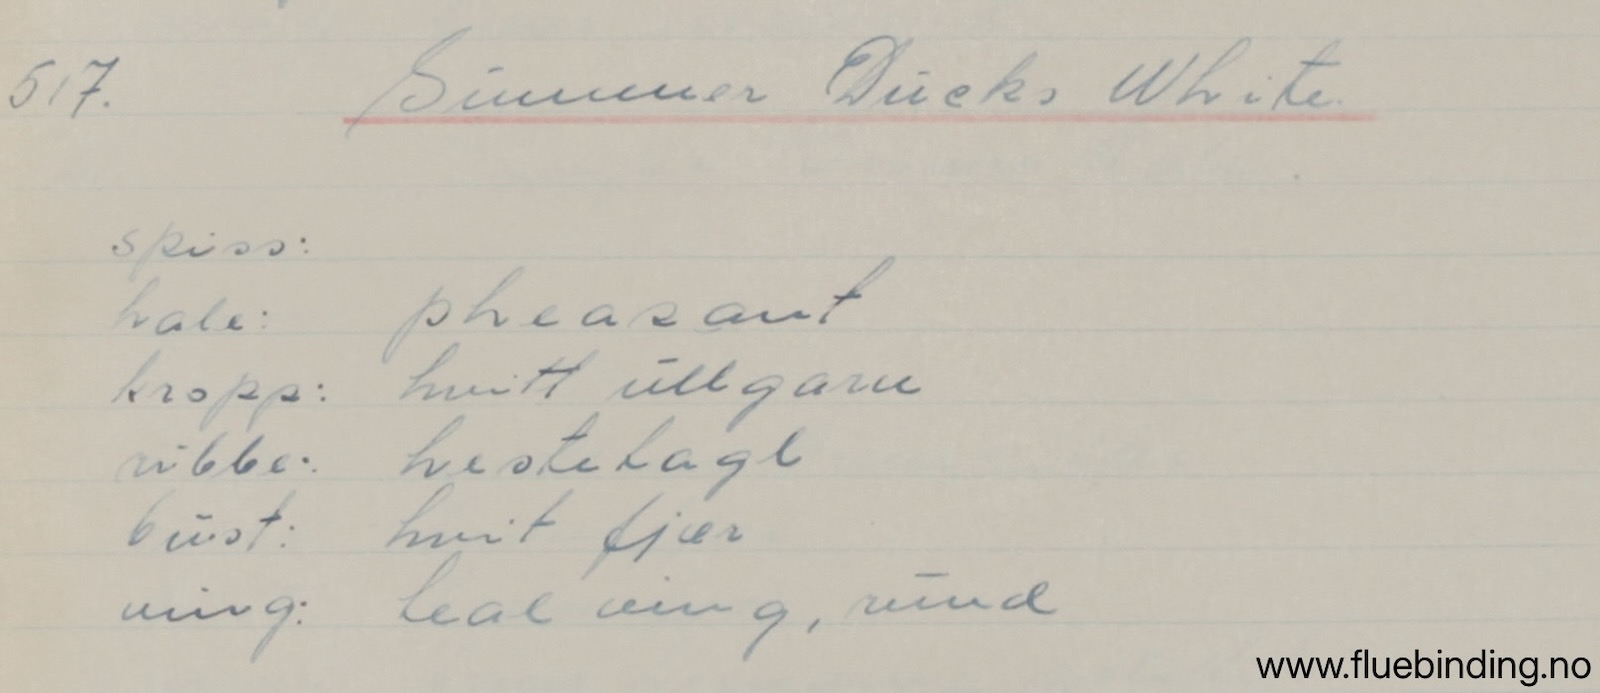 517. Summer Ducks White.
spiss:
hale: pheasant
kropp: hvitt ullgarn
ribbe: hestetagl
bust: hvit fjær
ving: teal ving, rund
www.fluebinding.no